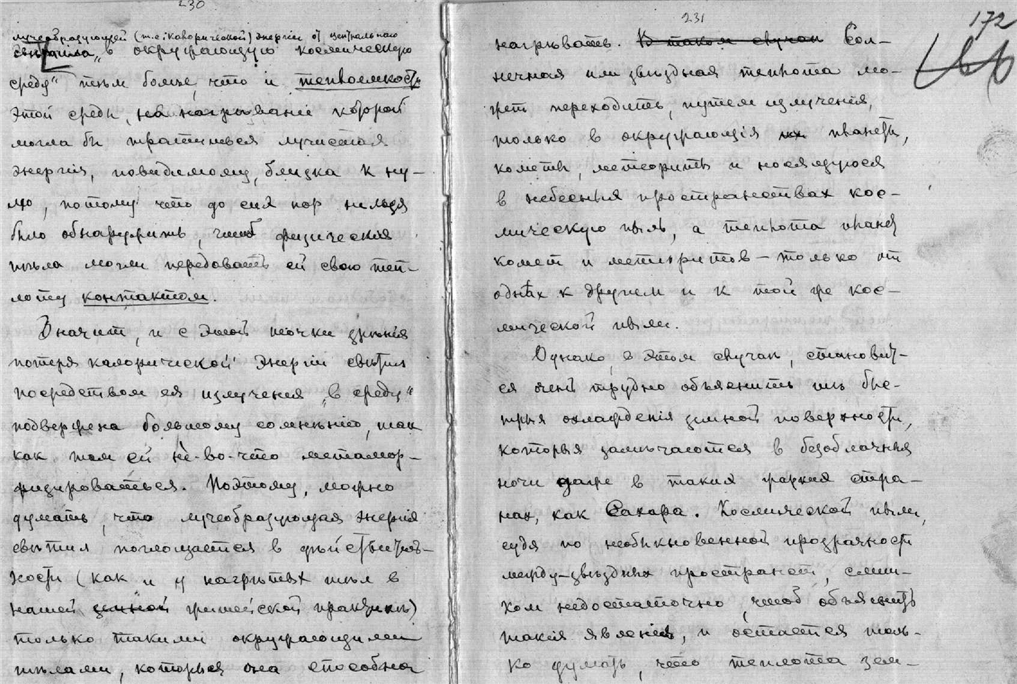 230
лучеобразующей (т.е. калорической) энергии от центральнаго
свѣтила „в окружающую космическую
среду“ тѣм болѣе, что и теплоемкость
этой среды, на нагрѣваніе которой
могла бы тратиться лучистая
энергія, повидимому, близка к ну-
лю, потому что до сих пор нельзя
было обнаружить, чтоб физическія
тѣла могли передавать ей свою теп-
лоту контактом.
Значит, и с этой точки зрѣнія
потеря калорической энергіи свѣтил
посредством ея излученія „в среду“
подвержена большому сомнѣнію, так
как там ей не-во-что метамор-
физироваться. Поэтому, можно
думать, что лучеобразующая энергія
свѣтил поглощается в дѣйствитель-
ности (как и у нагрѣтых тѣл в
нашей житейской практикѣ)
только такими окружающими
тѣлами, которыя она способна
231
172
нагрѣвать. В таком случаѣ Сол-
нечная или звѣздная теплота мо-
жет переходить, путем излученія,
только в окружающія их планеты,
кометы, метеориты и носящуюся
в небесных пространствах кос-
мическую пыль, а теплота планет
комет и метеоритов – только от
одних к другим и к той же кос-
мической пыли.
Однако, в этом случаѣ, становит-
ся очень трудно объяснить тѣ бы-
стрыя охлажденія земной поверхности,
которыя замѣчаются в безоблачныя
ночи даже в таких жарких стра-
нах, как Сахара. Космической пыли,
судя по необыкновенной прозрачности
между-звѣздных пространств, слиш-
ком недостаточно, чтоб объяснить
такія явленія, и остается толь-
ко думать, что теплота зем-